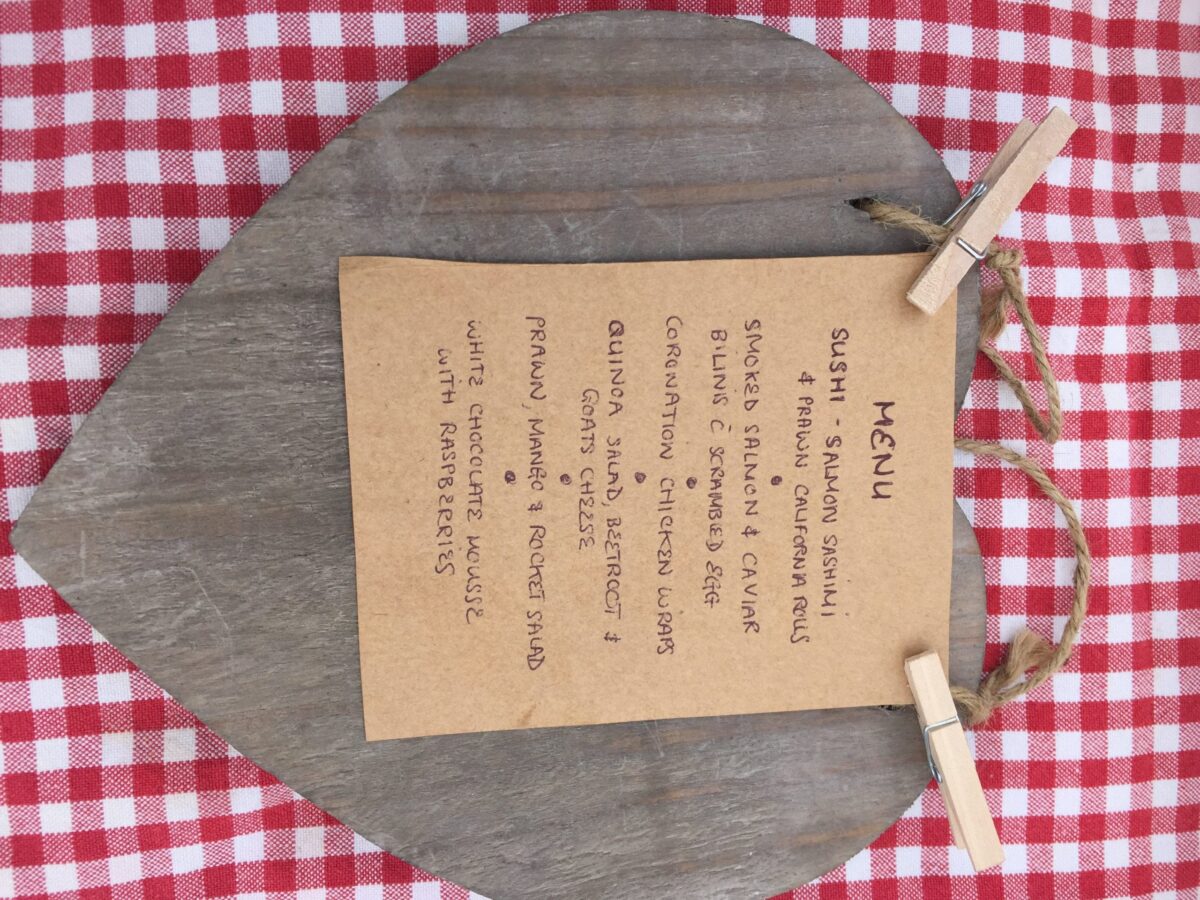 MENU
SUSHI - SALMON SASHIMI
& PRAWN CALIFORNIA ROLLS
•
SMOKED SALMON & CAVIAR
BILINIS C̄ SCRAMBLED EGG
•
CORONATION CHICKEN WRAPS
•
QUINOA SALAD, BEETROOT &
GOATS CHEESE
•
PRAWN, MANGO & ROCKET SALAD
•
WHITE CHOCOLATE MOUSSE
WITH RASPBERRIES